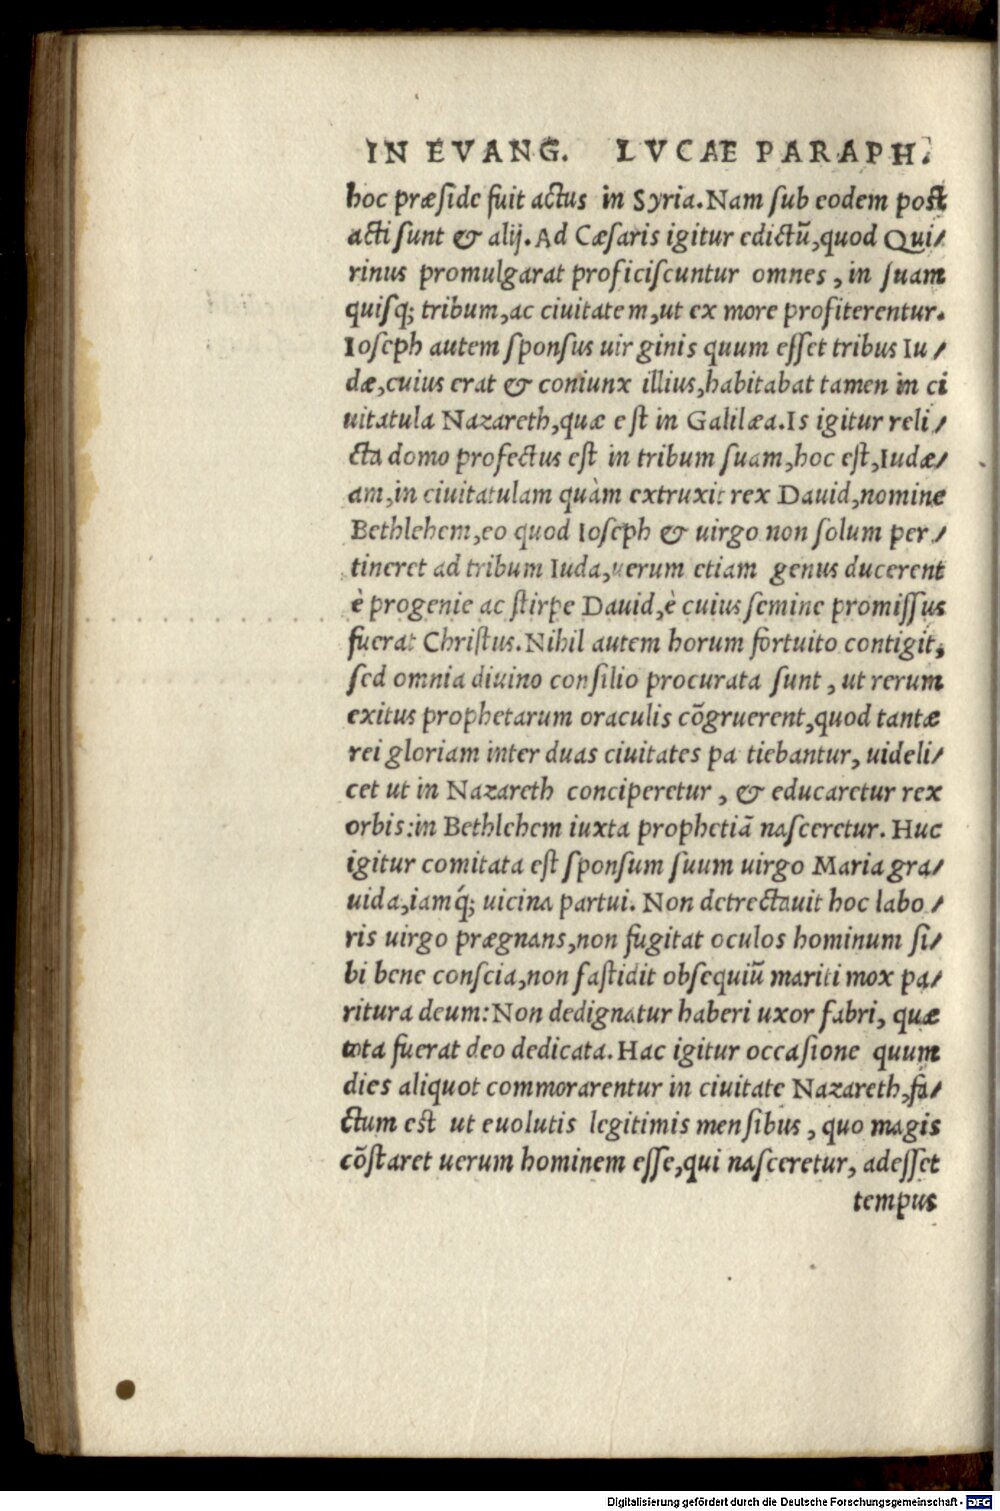 IN EVANG. LVCAE PARAPH.
hoc præſide fuit actus in Syria. Nam ſub eodem poſt
acti ſunt & alij. Ad Cæſaris igitur edictū, quod Qui/
rinus promulgarat proficiſcuntur omnes, in ſuam
quiſq; tribum, ac ciuitatem, ut ex more profiterentur.
Ioſeph autem ſponſus uirginis quum eſſet tribus Iu/
dæ, cuius erat & coniunx illius, habitabat tamen in ci
uitatula Nazareth, quæ eſt in Galilæa. Is igitur reli/
cta domo profectus eſt in tribum ſuam, hoc eſt, Iudæ/
am, in ciuitatulam quàm extruxit rex Dauid, nomine
Bethlehem, eo quod Ioſeph & uirgo non ſolum per/
tineret ad tribum Iuda, uerum etiam genus ducerent
è progenie ac ſtirpe Dauid, è cuius ſemine promiſſus
fuerat Chriſtus. Nihil autem horum fortuito contigit,
ſed omnia diuino conſilio procurata ſunt, ut rerum
exitus prophetarum oraculis cōgruerent, quod tantæ
rei gloriam inter duas ciuitates patiebantur, uideli/
cet ut in Nazareth conciperetur, & educaretur rex
orbis: in Bethlehem iuxta prophetiā naſceretur. Huc
igitur comitata eſt ſponſum ſuum uirgo Maria gra/
uida, iamq́; uicina partui. Non detrectauit hoc labo/
ris uirgo prægnans, non fugitat oculos hominum ſi/
bi bene conſcia, non faſtidit obſequiū mariti mox pa/
ritura deum: Non dedignatur haberi uxor fabri, quæ
tota fuerat deo dedicata. Hac igitur occaſione quum
dies aliquot commorarentur in ciuitate Nazareth, fa/
ctum eſt ut euolutis legitimis menſibus, quo magis
cōſtaret uerum hominem eſſe, qui naſceretur, adeſſet
tempus
Digitalisierung gefördert durch die Deutsche Forschungsgemeinschaft - DFG